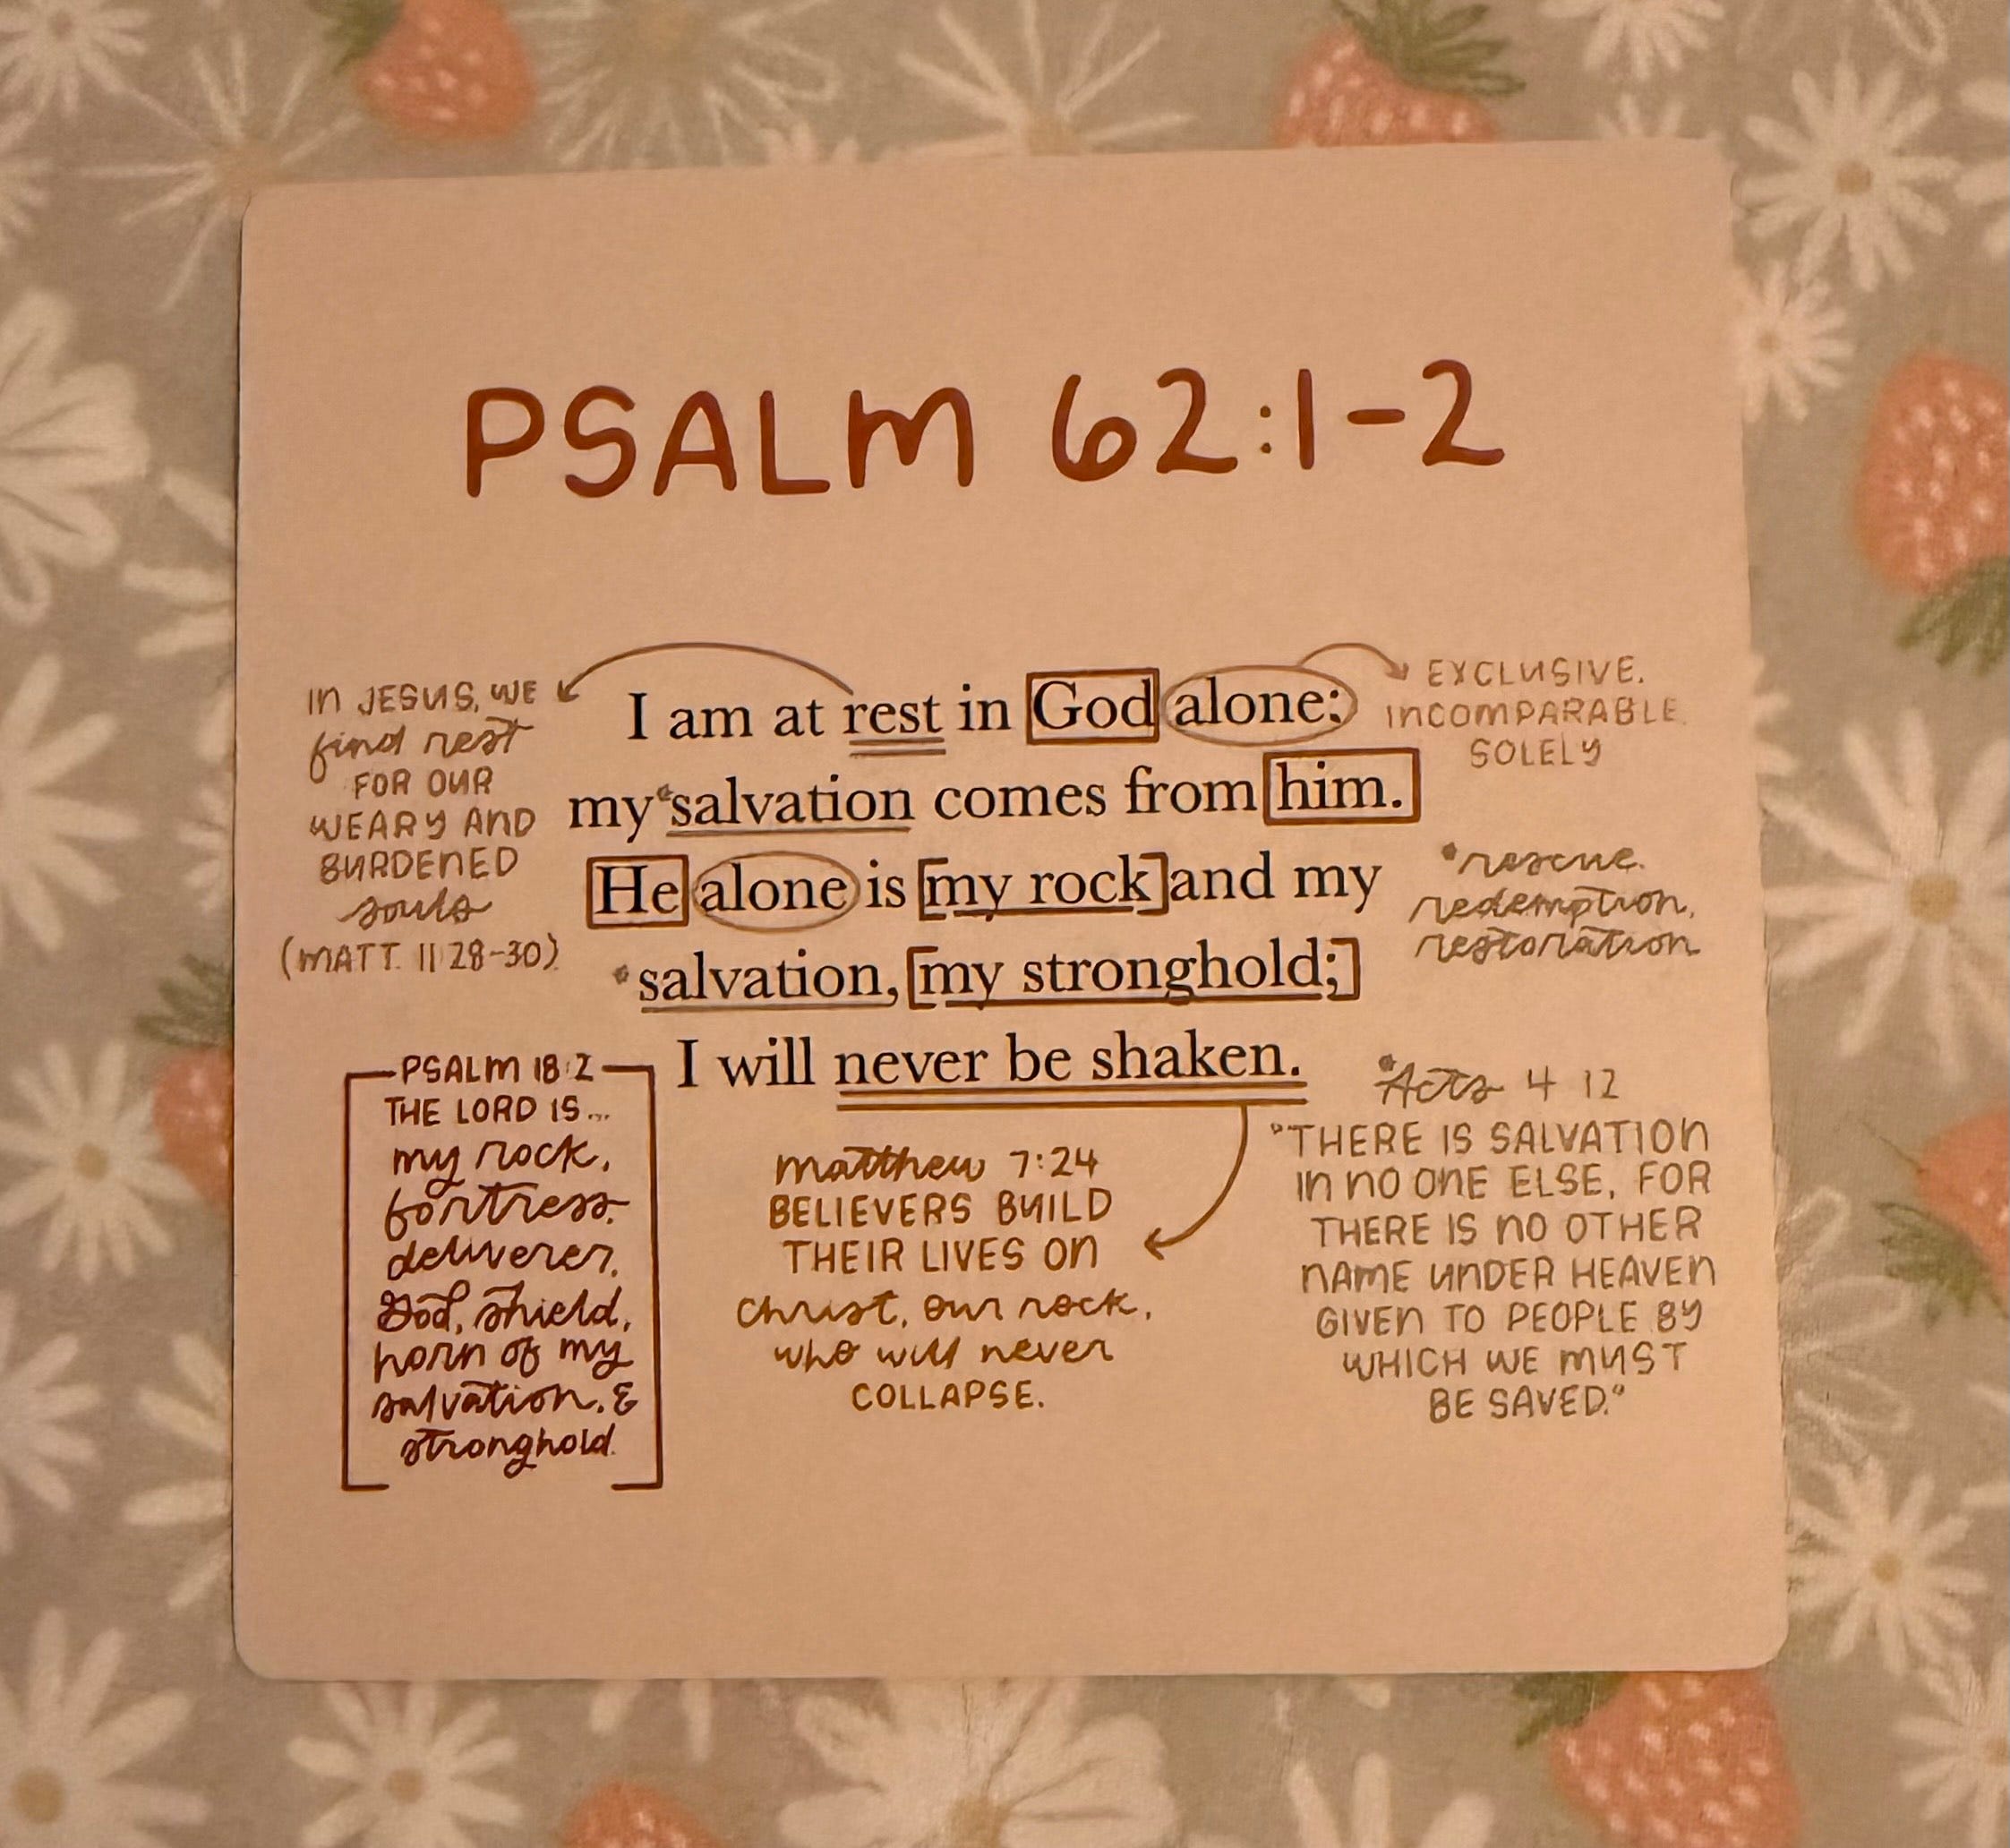 PSALM 62:1-2
I am at rest in God alone;
my *salvation comes from him.
He alone is [my rock] and my
*salvation, [my stronghold;]
I will never be shaken.
IN JESUS, WE
find rest
FOR OUR
WEARY AND
BURDENED
souls
(MATT. 11:28-30)
EXCLUSIVE.
INCOMPARABLE.
SOLELY
*rescue.
redemption.
restoration
PSALM 18:2
THE LORD IS...
my rock,
fortress,
deliverer,
God, shield,
horn of my
salvation, &
stronghold.
matthew 7:24
BELIEVERS BUILD
THEIR LIVES ON
Christ, our rock,
who will never
COLLAPSE.
*Acts 4 12
"THERE IS SALVATION
IN NO ONE ELSE, FOR
THERE IS NO OTHER
NAME UNDER HEAVEN
GIVEN TO PEOPLE BY
WHICH WE MUST
BE SAVED."